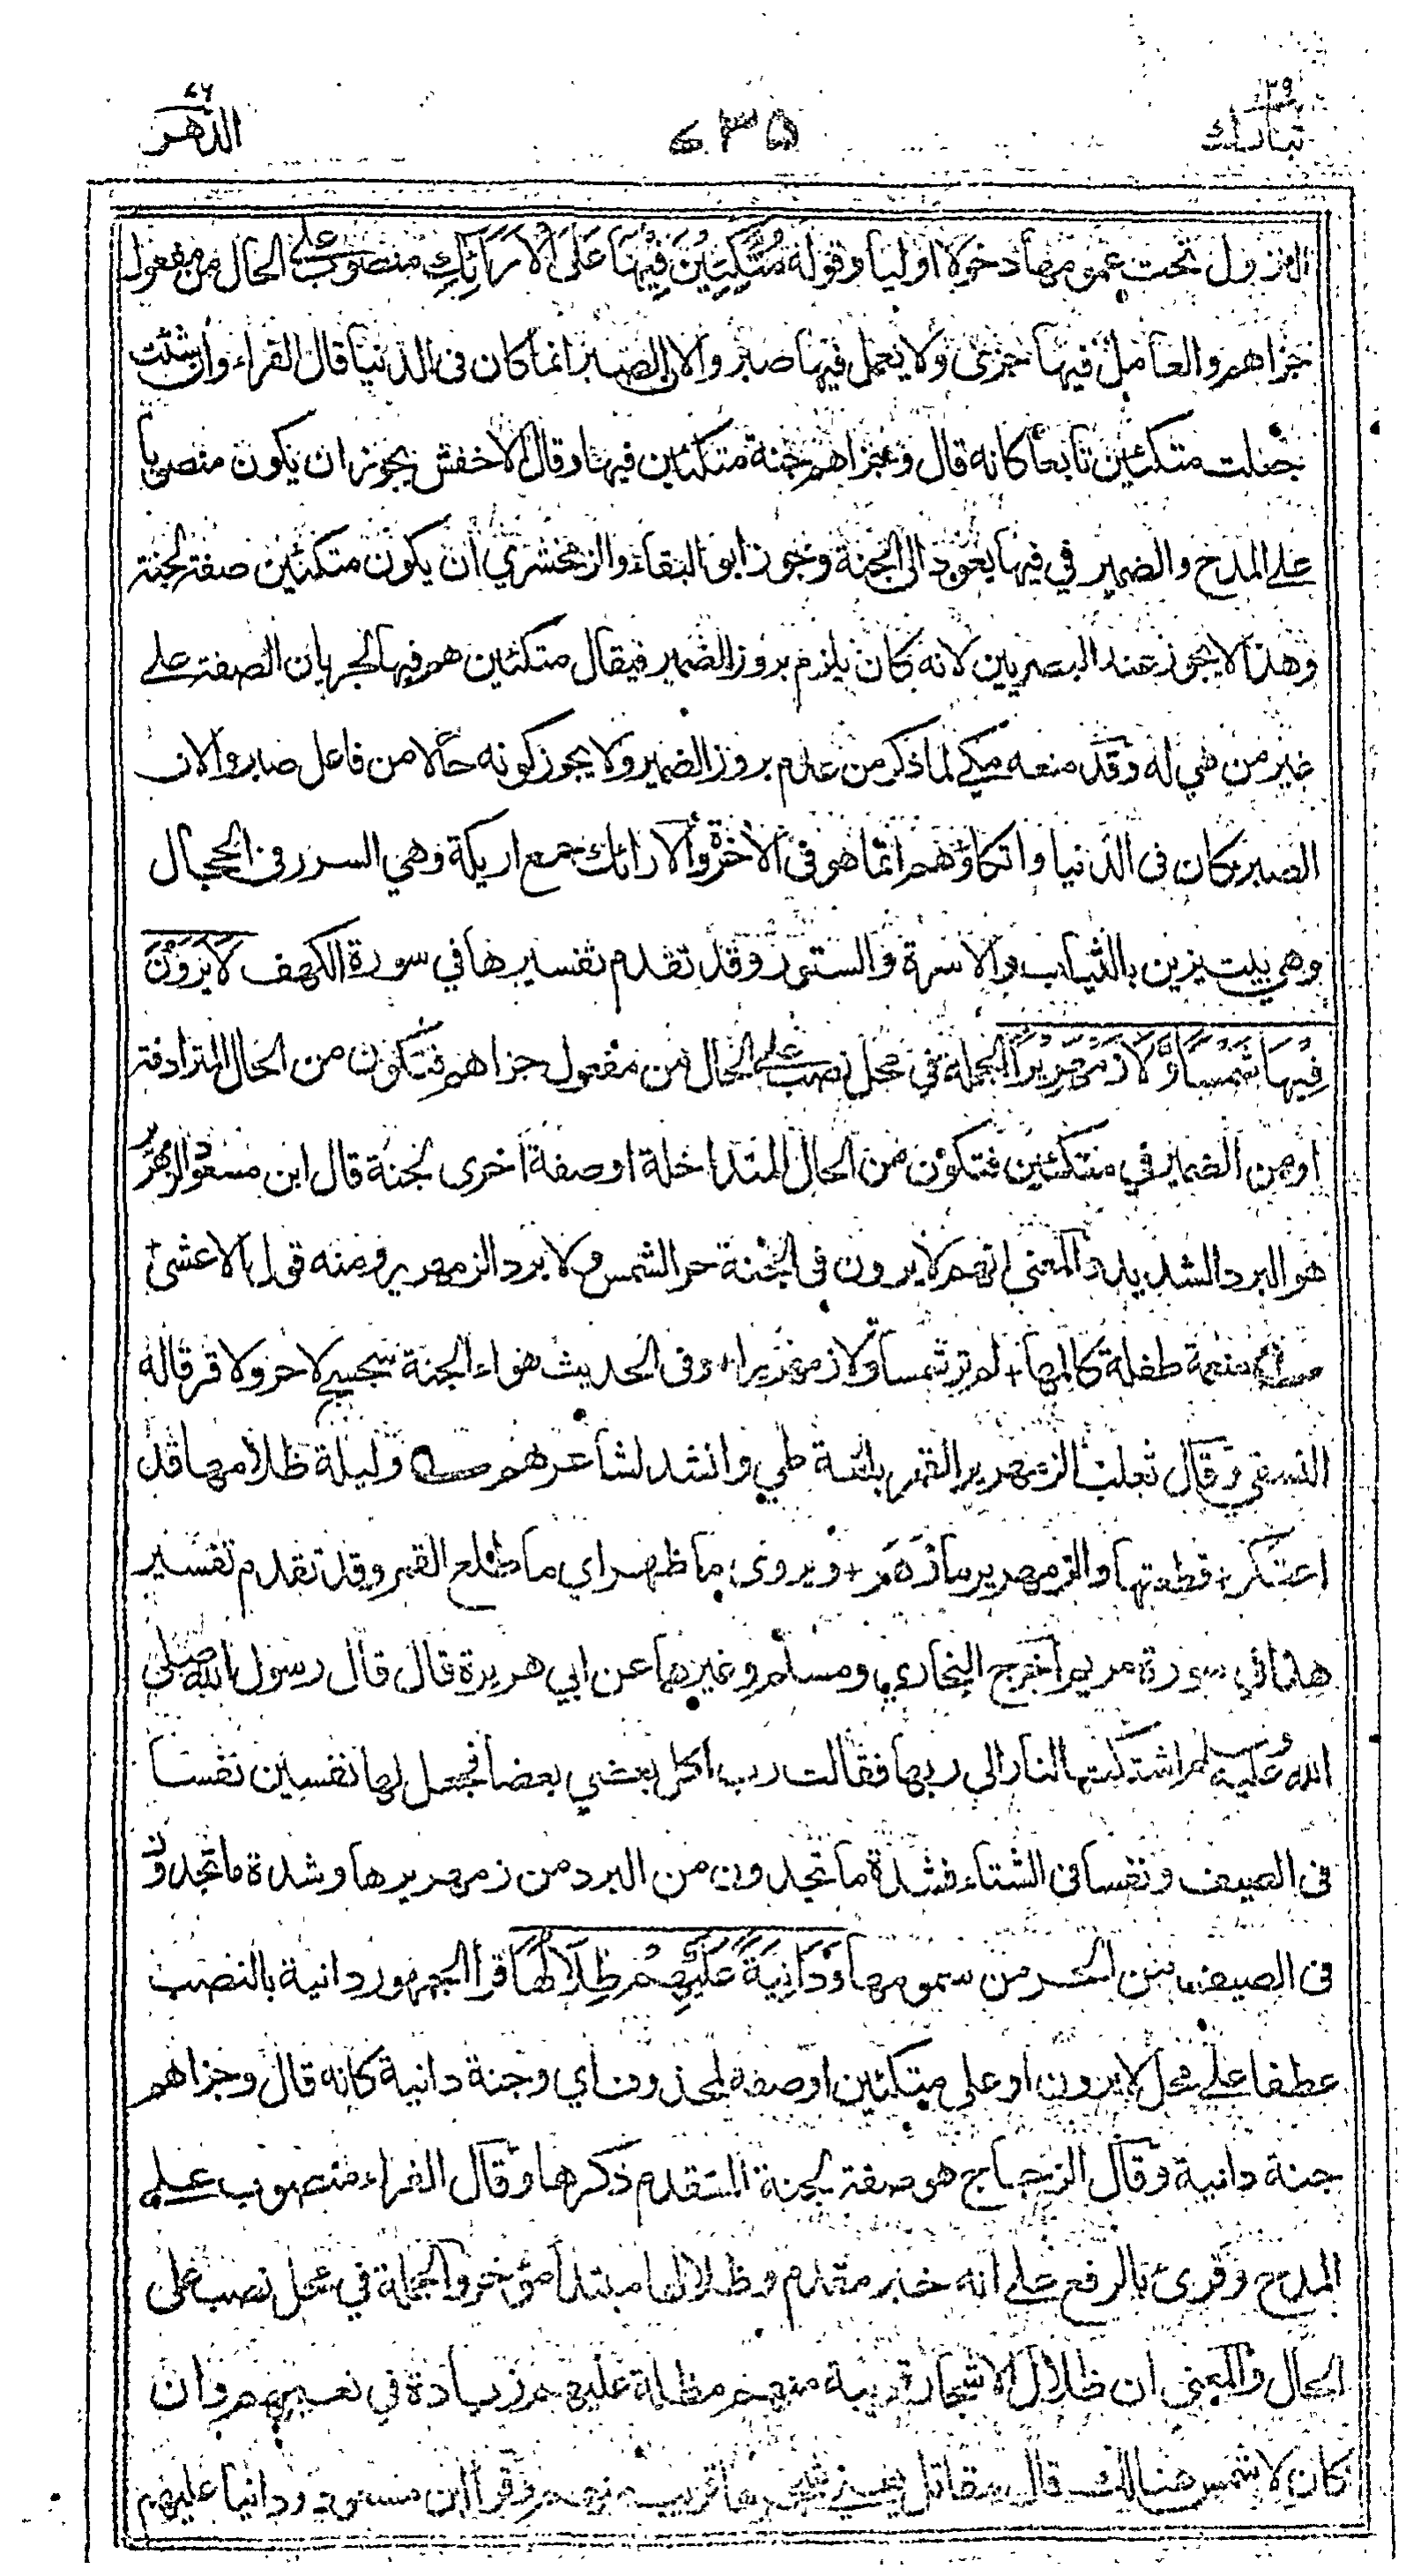 تبارك ٢٩
٦٣٥
الدهر ٧٦
النزول تحت عمومها دخولا اوليا وقوله مُتَّكِئِيْنَ فِيْهَا عَلَى الْاَرَائِكِ منصوب على الحال من مفعول
جزاهم والعامل فيها جزى ولا يعمل فيها صبروا لان الصبر انما كان فى الدنيا قال الفراء وان شئت
جعلت متكئين تابعا كانه قال وجزاهم جنة متكئين فيها وقال الاخفش يجوز ان يكون منصوبا
على المدح والضمير في فيها يعود الى الجنة وجوز ابو البقاء والزمخشري ان يكون متكئين صفة لجنة
وهذا لا يجوز عند البصريين لانه كان يلزم بروز الضمير فيقال متكئين هم فيها لجريان الصفة على
غير من هي له وقد منعه مكي لما ذكر من عدم بروز الضمير ولا يجوز كونه حالا من فاعل صبروا لان
الصبر كان فى الدنيا واتكاؤهم انما هو فى الاخرة والارائك جمع اريكة وهي السرر فى الحجال
وهي بيت يزين بالثياب والاسرة والستور وقد تقدم تفسيرها في سورة الكهف لَا يَرَوْنَ
فِيْهَا شَمْسًا وَّلَا زَمْهَرِيْرًا الجملة في محل نصب على الحال من مفعول جزاهم فتكون من الحال المترادفة
او من الضمير في متكئين فتكون من الحال المتداخلة او صفة اخرى لجنة قال ابن مسعود الزمهرير
هو البرد الشديد والمعنى انهم لا يرون فى الجنة حر الشمس ولا برد الزمهرير ومنه قول الاعشى
منعمة طفلة كالمها + لم تر شمسا ولا زمهريرا، وفى الحديث هواء الجنة سجسج لا حر ولا قر قاله
النسفي وقال ثعلب الزمهرير القمر بلغة طي وانشد لشاعرهم وليلة ظلامها قد
اعتكر + قطعتها والزمهرير ما زهر + ويروى ما ظهر اي ما طلع القمر وقد تقدم تفسير
هذا في سورة مريم اخرج البخاري ومسلم وغيرهما عن ابي هريرة قال قال رسول الله صلى
الله عليه وسلم اشتكت النار الى ربها فقالت رب اكل بعضي بعضا فجعل لها نفسين نفسا
فى الصيف ونفسا فى الشتاء فشدة ما تجدون من البرد من زمهريرها وشدة ما تجدون
فى الصيف من الحر من سمومها وَدَانِيَةً عَلَيْهِمْ ظِلَالُهَا قرأ الجمهور دانية بالنصب
عطفا على محل لا يرون او على متكئين او صفة لمحذوف اي وجنة دانية كانه قال وجزاهم
جنة دانية وقال الزجاج هو صفة لجنة المتقدم ذكرها وقال الفراء منصوب على
المدح وقرئ بالرفع على انه خبر مقدم وظلالها مبتدأ مؤخر والجملة في محل نصب على
الحال والمعنى ان ظلال الاشجار قريبة منهم مظلة عليهم زيادة في نعيمهم وان
كان لا شمس هنالك قال مقاتل يعني شجرها قريب منهم وقرأ ابن مسعود ودانيا عليهم